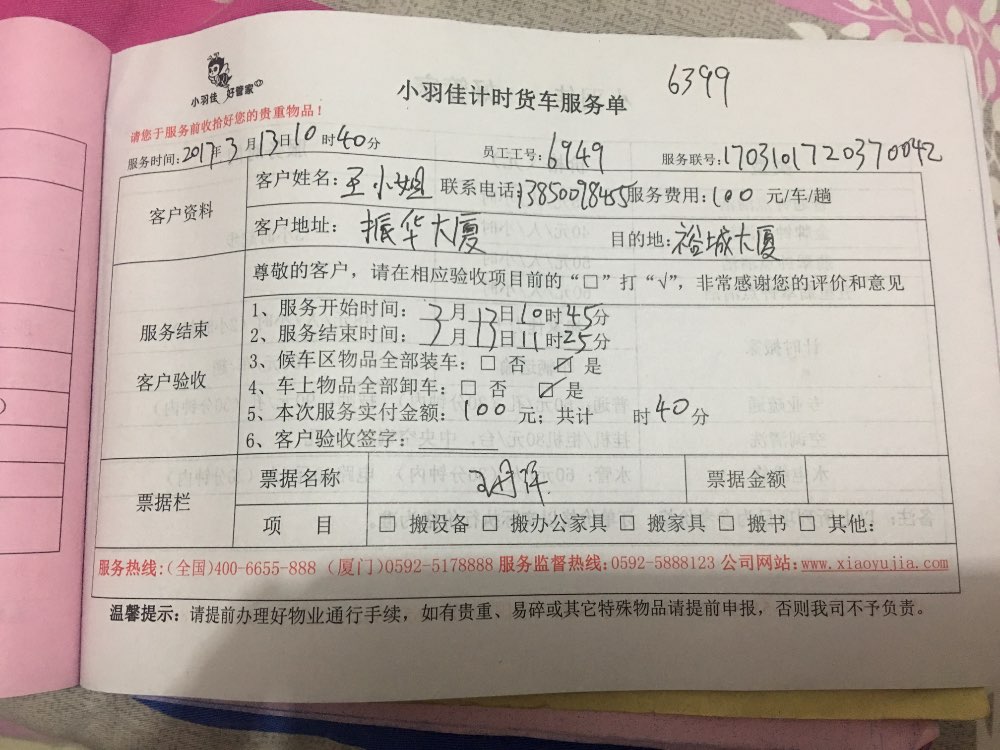 6399
小羽佳 好管家
小羽佳计时货车服务单
请您于服务前收拾好您的贵重物品！
服务时间：2017年3月13日10时40分 员工工号：6949 服务联号：1703101720370042
客户资料
客户姓名：王小姐 联系电话：13850098455 服务费用：100 元/车/趟
客户地址： 振华大厦 目的地：裕城大厦
服务结束
客户验收
尊敬的客户，请在相应验收项目前的“□”打“√”，非常感谢您的评价和意见
1、服务开始时间：3月13日10时45分
2、服务结束时间：3月13日11时25分
3、候车区物品全部装车：□ 否 ☑ 是
4、车上物品全部卸车：□ 否 ☑ 是
5、本次服务实付金额：100 元；共计 时40分
6、客户验收签字：
票据栏
票据名称 票据金额
项 目 □ 搬设备 □ 搬办公家具 □ 搬家具 □ 搬书 □ 其他：
服务热线：(全国)400-6655-888 (厦门)0592-5178888 服务监督热线：0592-5888123 公司网站：www.xiaoyujia.com
温馨提示：请提前办理好物业通行手续，如有贵重、易碎或其它特殊物品请提前申报，否则我司不予负责。